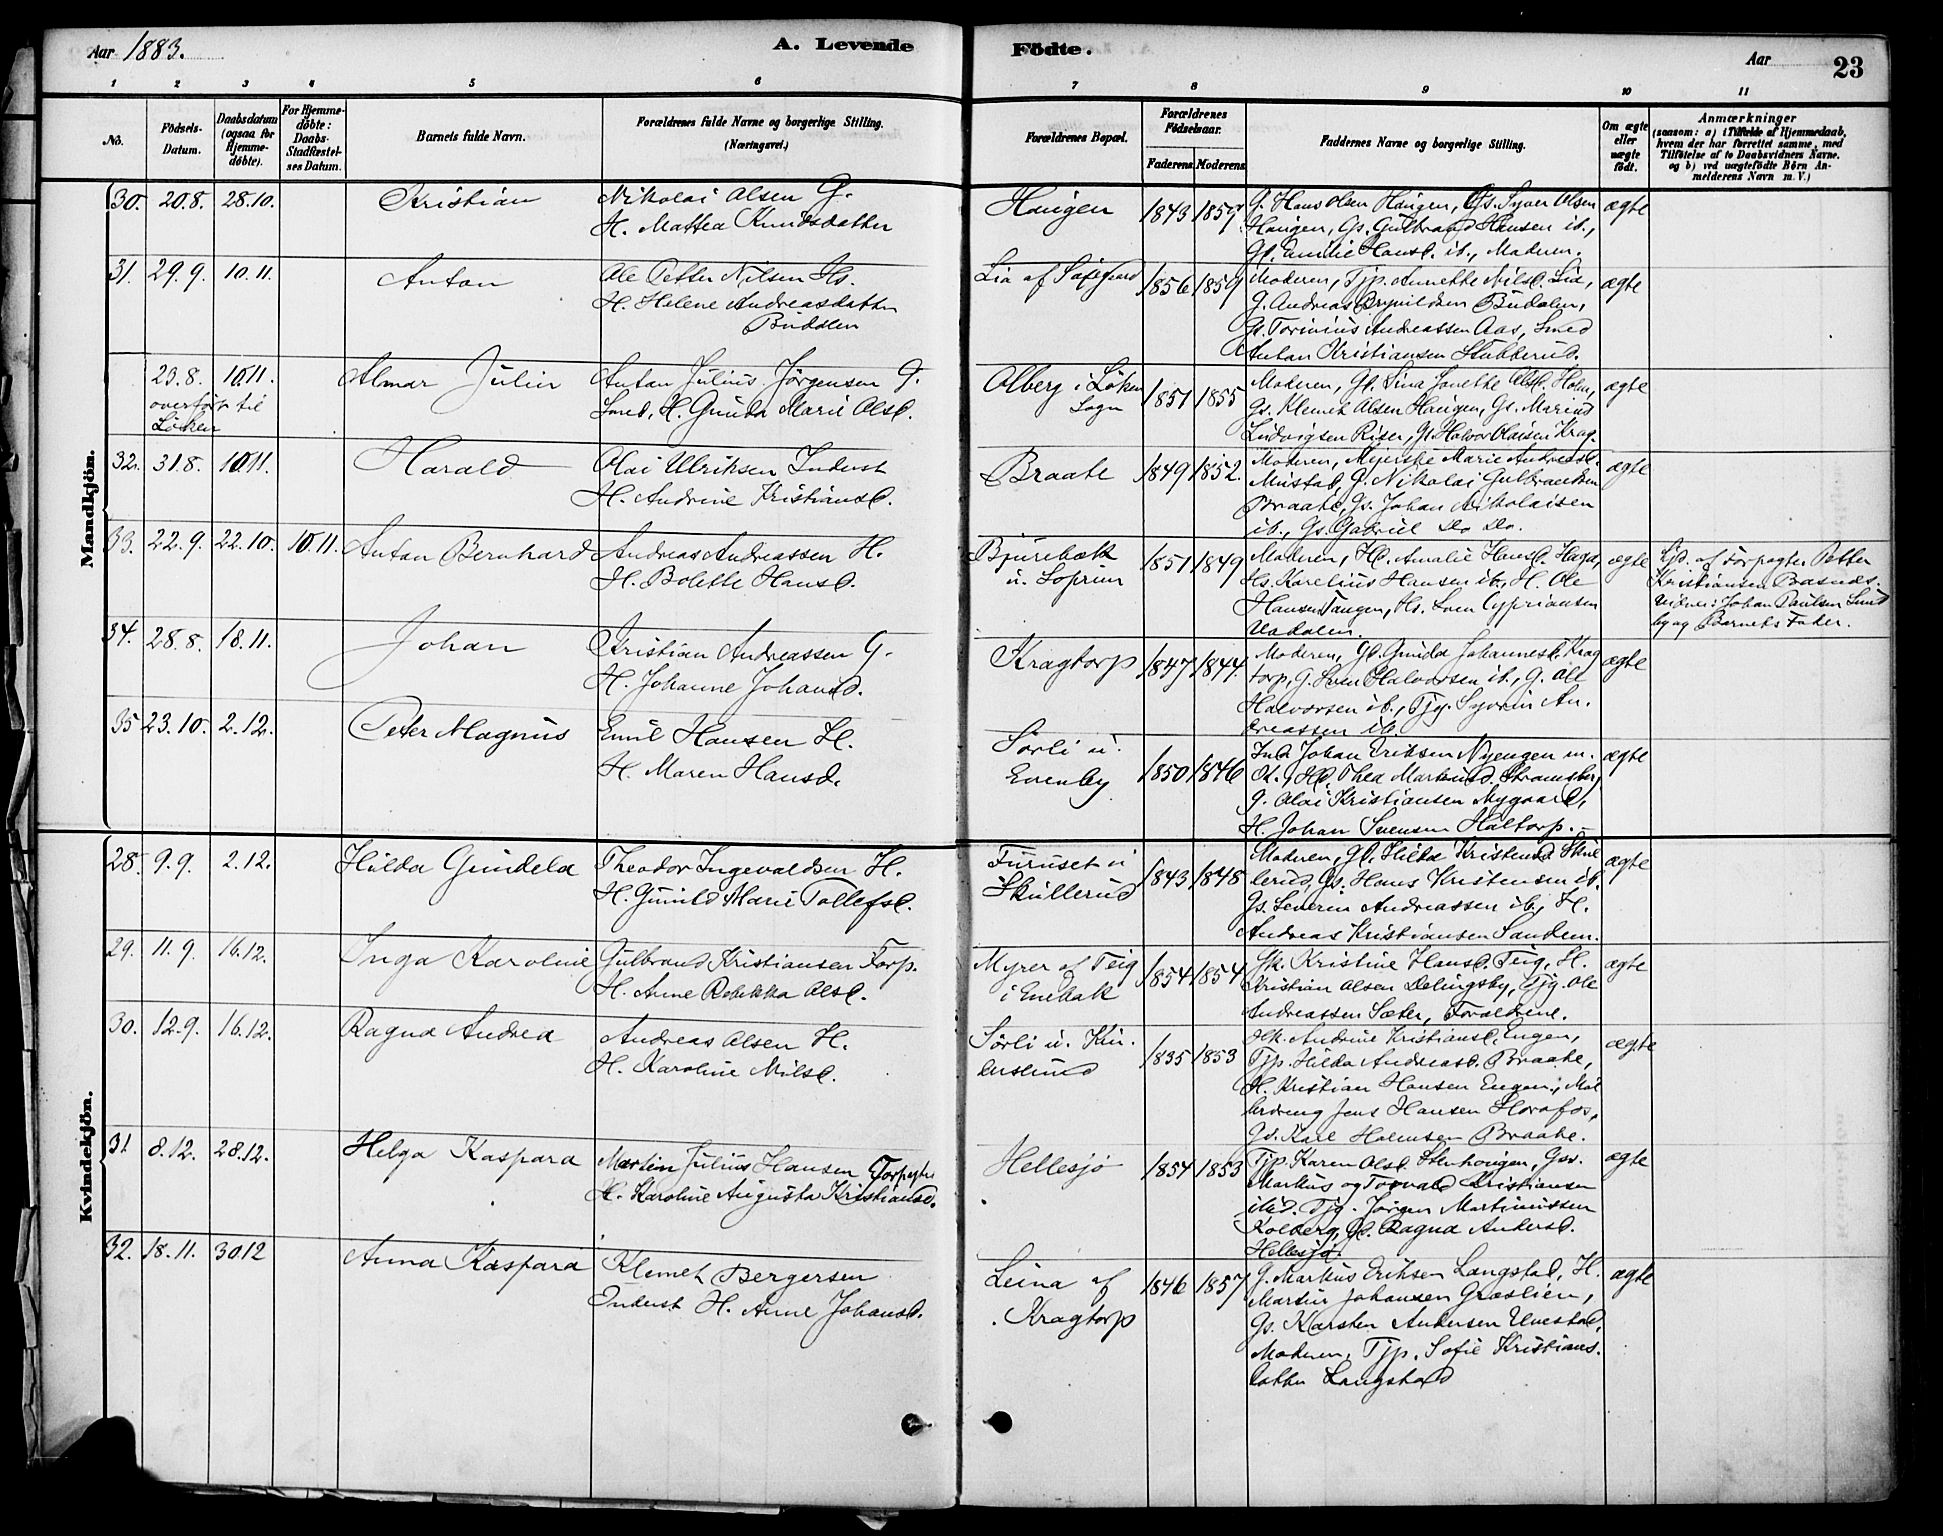 Aar 1883.
A. Levende
Födte.
Aar
23
1 2 3 4 5 6 7 8 9 10 11
No.
Födsels-
Datum.
Daabsdatum
(ogsaa for
Hjemme-
döbte).
For Hjemme-
döbte:
Daabs-
Stadfæstel-
ses Datum.
Barnets fulde Navn.
Forældrenes fulde Navne og borgerlige Stilling.
(Næringsvei.)
Forældrenes Bopæl.
Forældrenes
Födselsaar.
Faderens Moderens
Faddernes Navne og borgerlige Stilling.
Om ægte
eller
uægte
födt.
Anmærkninger
(saasom: a) i Tilfælde af Hjemmedaab,
hvem der har forrettet samme, med
Tilföielse af to Daabsvidners Navne.
og b) ved uægtefödte Börn An-
melderens Navn m. V.)
Mandkjön.
30. 20.8. 28.10. Kristian
Nikolai Olsen G.
H. Mathea Knudsdatter
Haugen 1843 1859
G. Hans Olsen Haugen, Gs. Syver Olsen
Haugen, Gs. Gulbrand Hansen ib.,
Gd. Emilie Hansd. ib., Moderen.
ægte
31. 29.9. 10.11. Anton
Ole Petter Nilsen Hs.
H. Helene Andreasdatter
Budalen
Lia af 1856 1859
Moderen, Tjp. Annette Nilsd. Lia,
G. Andreas Brynildsen Budalen,
Gs. Torinius Andreassen Aas, Smed
Anton Kristiansen Stubberud.
ægte
29.8. 10.11. Almar Julin
overført til
Løken
Anton Julius Jørgensen G.
Smed, H. Gunda Marie Olsd.
Olberg i Løken
Sogn
1851 1855
Moderen, Gd. Lina Jonette Olsd. Holm,
Gs. Klemet Olsen Haugen, Gs. Marius
Ludvigsen Riser, Gs. Halvor Olaisen Krag.
ægte
32. 31.8. 10.11. Harald
Olai Ulriksen Inderst
H. Andrine Kristiansd.
Braate 1849 1852.
Moderen, Meierske Marie Andreasd.
Mustad, G. Nikolai Gulbrandsen
Braate, Gs. Johan Nikolaisen
ib., Gs. Gabriel Do Do.
ægte
33. 22.9. 22.10. 10.11. Anton Bernhard
Andreas Andreassen H.
H. Bolette Hansd.
Bjurebæk
u. Soprim
1851 1849
Moderen, Hd. Amalie Hansd. Haga,
Hs. Karelius Hansen ib., H. Ole
Hansen Tangen, Hs. Sven Cypriansen
Vadalen.
ægte
Hjd. af Forpagter Petter
Kristiansen Basnes.
Vidner: Johan Paulsen Lund
by og Barnets Fader.
34. 28.8. 18.11. Johan
Kristian Andreassen G.
H. Johanne Johansd.
Kragtorp 1847 1844.
Moderen, Gd. Gunda Johannesd. Krag
torp, G. Sven Halvorsen ib., G. Ole
Halvorsen ib., Tjg. Syverin An-
dreassen ib.
ægte
35 23.10. 2.12. Peter Magnus
Emil Hansen H.
H. Maren Hansd.
Sørli u.
Evenby
1850 1846
Ind. Johan Eriksen Nyengen m.
K., Hd. Thea Martinsd. Strømsberg,
G. Olai Kristiansen Nygaard,
H. Johan Svensen Haltorp.
ægte
Kvindekjön.
28. 9.9. 2.12. Hilda Gundela
Theodor Ingevaldsen H.
H. Gunild Marie Tollefsd.
Furuset u
Skullerud
1843 1848
Moderen, Gd. Hilda Kristensd. Skul
lerud, Gs. Hans Kristensen ib.
Gs. Severin Andreassen ib., H.
Andreas Kristiansen Sandem.
ægte
29. 11.9. 16.12. Inga Karoline
Gulbrand Kristiansen Forp.
H. Anne Rebekka Olsd.
Myrer af Teig
i Enebak
1854 1854
Gk. Kristine Hansd. Teig, H.
Kristian Olsen Delingsby, Tjg. Ole
Andreassen Sæter, Forældrene.
ægte
30. 12.9. 16.12. Ragna Andrea
Andreas Olsen H.
H. Karoline Nilsd.
Sørli u. Kin-
1835 1853
Hk. Andrine Kristiansd. Engen,
Tjp. Hilda Andreasd. Braate,
H. Kristian Hansen Engen, Møl
lerdreng Jens Hansen Horafos,
Gs. Karl Halmsen Braate.
ægte
31 8.12. 28.12. Helga Kaspara
Martin Julius Hansen Forpagter
H. Karoline Augusta Kristiansd.
Hellesjø 1854 1853
Tjp. Karen Olsd. Stenhougen, Gss.
Markus og Torvald Kristiansen
ibid. Tjg. Jørgen Martinussen
Kolberg, Gd. Ragna Andersd.
Hellesjø.
ægte
32. 18.11. 30.12 Anna Kaspara
Klemet Bergersen
Inderst H. Anne Johansd.
Leina af
Kragtorp
1846 1857
G. Markus Eriksen Langstad, H.
Martin Johansen Græslien,
Gs. Karsten Andersen Unestad,
Moderen, Tjp. Sofie Kristians-
datter Langstad
ægte